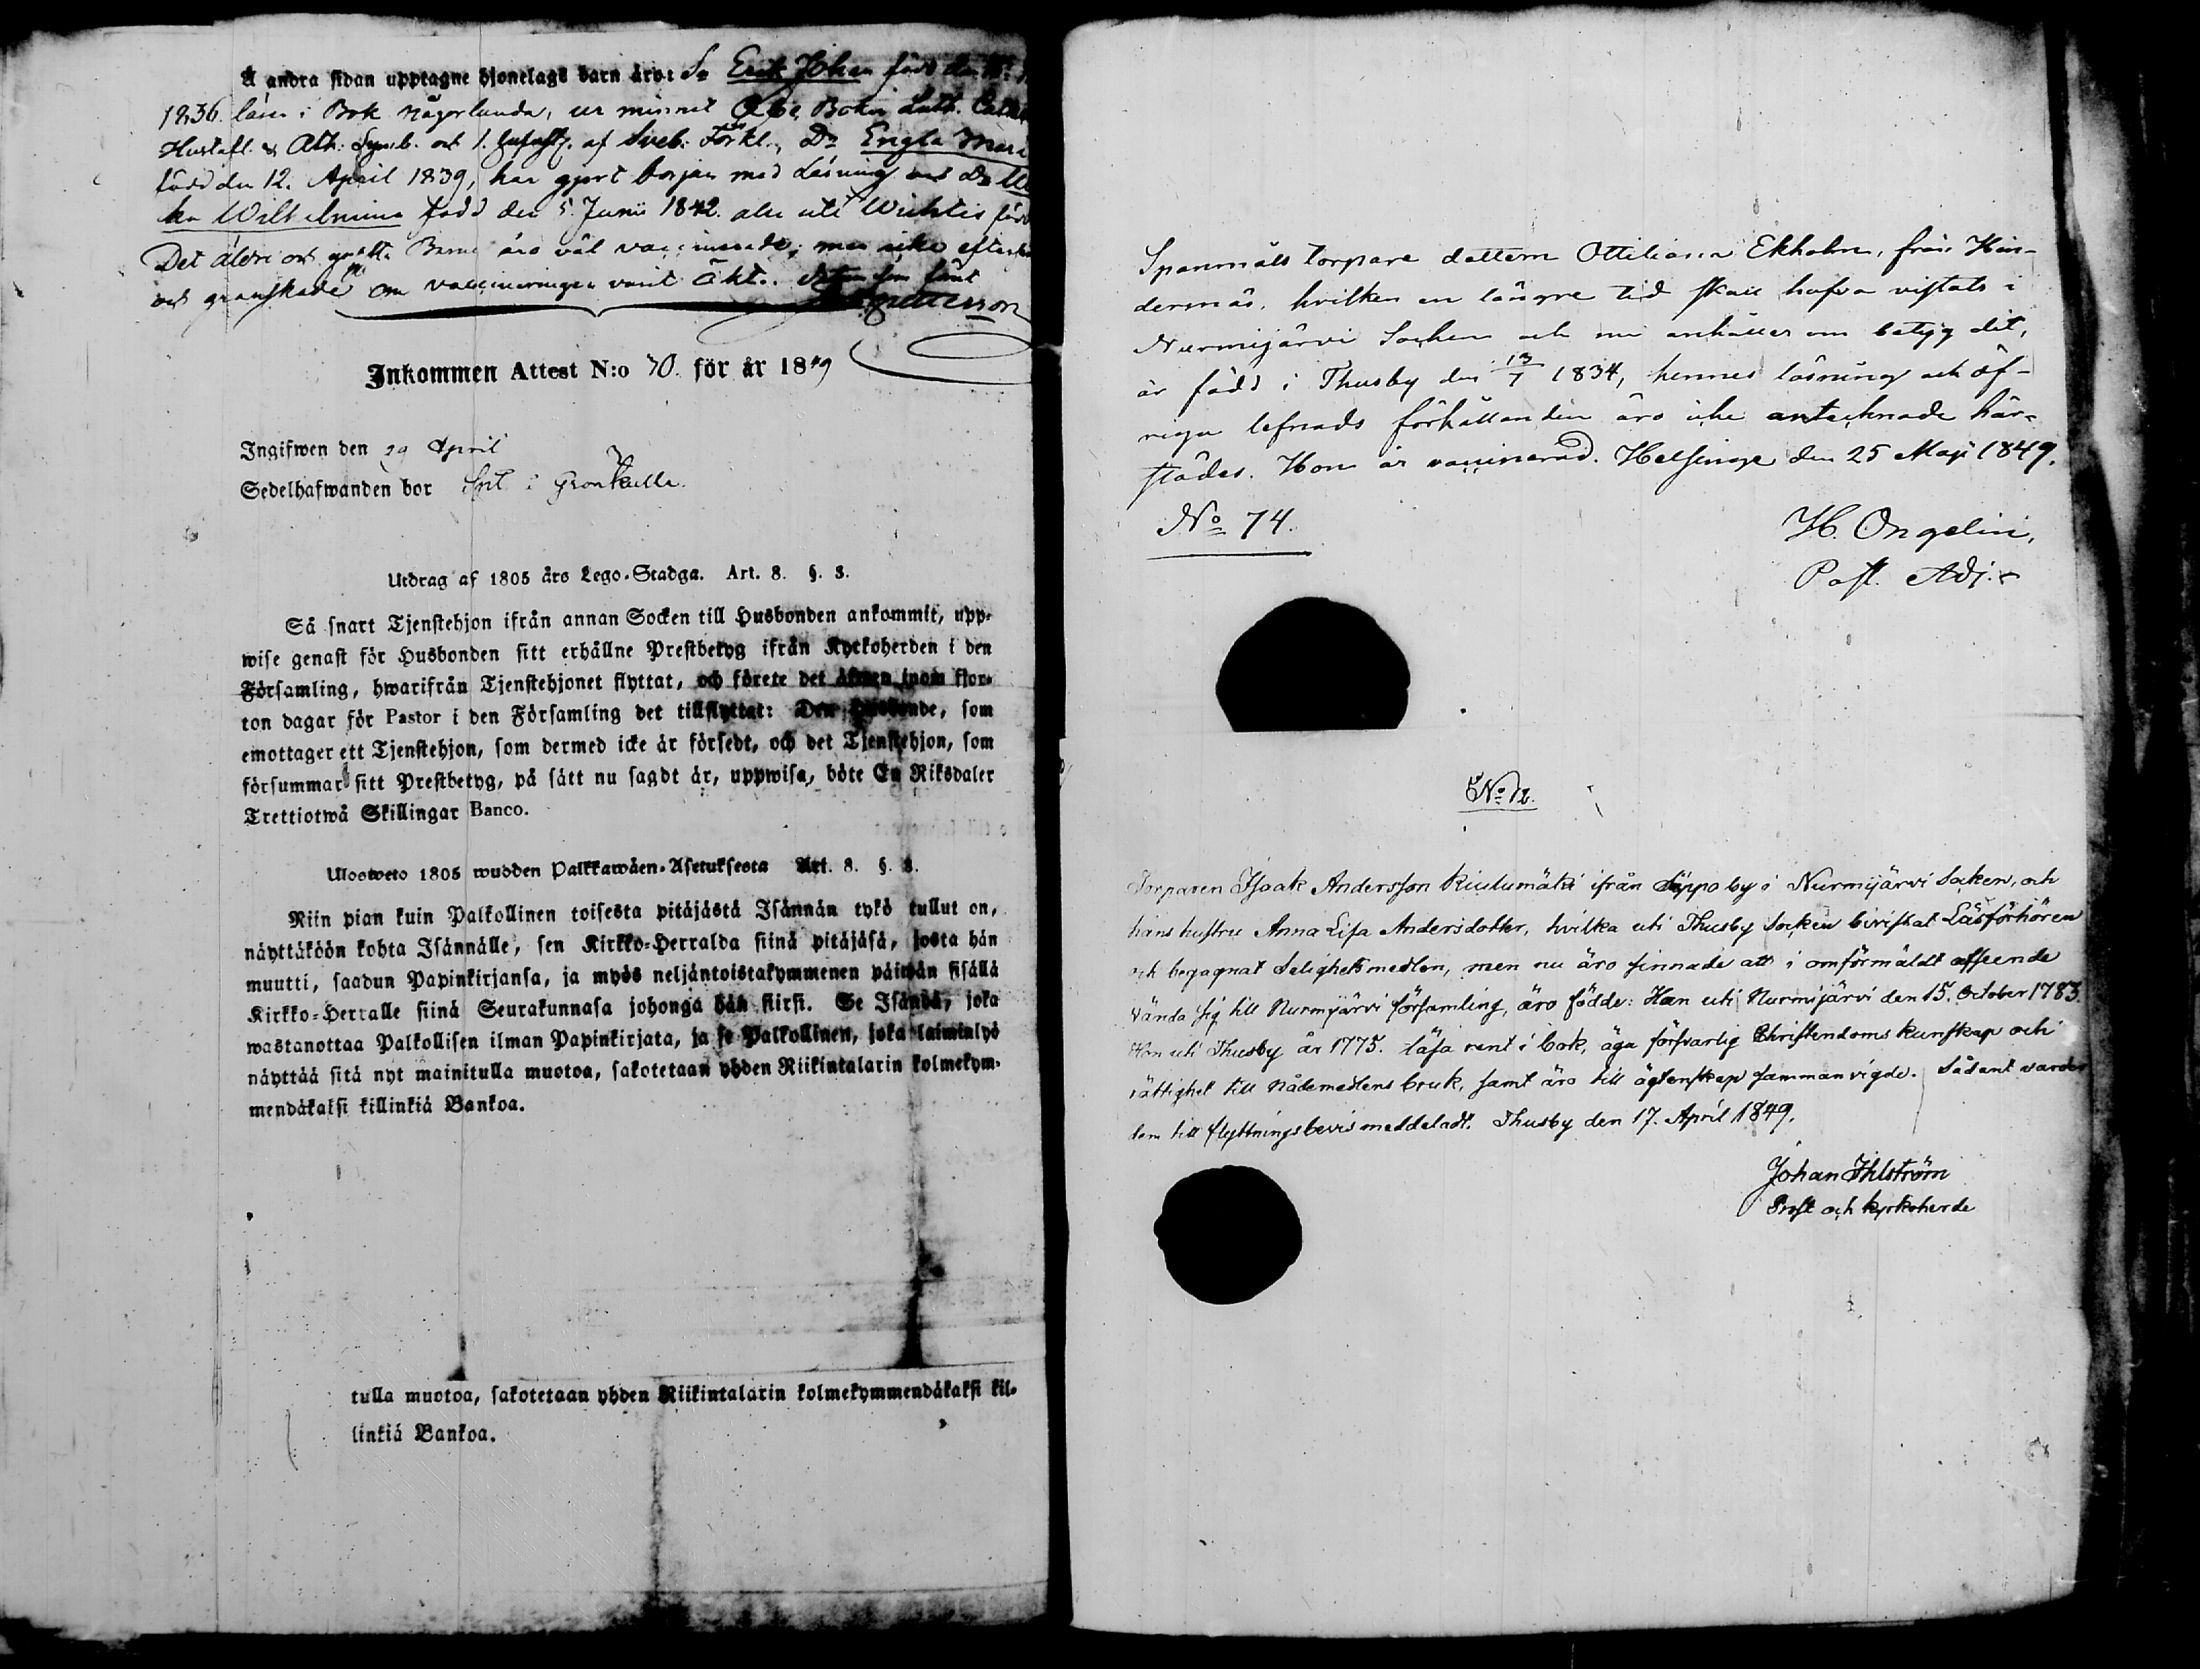 Å andra sidan upptagne hjonelags barn äro: Sn Erik Johan född den
1836. läser i Bok någorlunda, ur minnet Abc Boken Luth. Cateches
Hustafl. & Ath. Symb. och 1. af Sveb. Förkl., Dr Engla Maria
född den 12. April 1839, har gjort början med Läsning och Dr
ka Wilhelmina född den 5 Junii 1842. alla uti Wichtis född
Det äldre och yngsta Barnet äro väl vaccinerade; men icke
och granskade om vaccineringen varit äkta.
Inkommen Attest N:o 70. för år 1849
Ingifwen den 29 April
Sedelhafwanden bor i Grönkulla.
Utdrag af 1805 års Lego-Stadga. Art. 8. §. 3.
Så snart Tjenstehjon ifrån annan Socken till Husbonden ankommit, upp-
wise genast för Husbonden sitt erhållne Prestbetyg ifrån Kyrkoherden i den
Församling, hwarifrån Tjenstehjonet flyttat, och förete det äfwen inom fjor-
ton dagar för Pastor i den Församling det tillflyttat: Den Husbonde, som
emottager ett Tjenstehjon, som dermed icke är försedt, och det Tjenstehjon, som
försummar sitt Prestbetyg, på sätt nu sagdt är, uppwisa, böte En Riksdaler
Trettiotwå Skillingar Banco.
Ulosweto 1805 wuoden Palkkawäen-Asetuksesta Art. 8. §. 3.
Niin pian kuin Palkollinen toisesta pitäjästä Isännän tykö tullut on,
näyttäköön kohta Isännälle, sen Kirkko-Herralda siinä pitäjäsä, josta hän
muutti, saadun Papinkirjansa, ja myös neljäntoistakymmenen päiwän sisällä
Kirkko-Herralle siinä Seurakunnasa johonga hän siirsi. Se Isändä, joka
wastanottaa Palkollisen ilman Papinkirjata, ja se Palkollinen, joka laiminlyö
näyttää sitä nyt mainitulla muotoa, sakotetaan yhden Riikintalarin kolmekym-
mendäkaksi killinkiä Bankoa.
tulla muotoa, sakotetaan yhden Riikintalarin kolmekymmendäkaksi kil-
linkiä Bankoa.
Spanmåls torpare dottern Ottiliana Ekholm, från Hin-
dersnäs, hvilken en längre tid skall hafva vistats i
Nurmijärvi Socken och nu anhåller om betyg dit,
är född i Thusby den 13/7 1834, hennes läsning och öf-
riga lefnads förhållanden äro icke antecknade här-
städes. Hon är vaccinerad. Helsinge den 25 Maji 1849.
No 74.
H. Ongelin,
Past. Adj.
No 72.
Torparen Isaak Andersson Kiulumäki ifrån Seppo by i Nurmijärvi Socken, och
hans hustru Anna Lisa Andersdotter, hvilka uti Thusby Socken bivistat Läsförhören
och begagnat Salighetsmedlen, men nu äro sinnade att i omförmäldt afseende
vända sig till Nurmijärvi församling, äro födde: Han uti Nurmijärvi den 15. October 1783.
Hon uti Thusby år 1775. läsa rent i bok, äga försvarlig Christendoms kunskap och
rättighet till Nådemedlens bruk, samt äro till ägtenskap sammanvigde. Sådant varder
dem till flyttningsbevis meddeladt. Thusby den 17. April 1849.
Johan Ihlström
Prost och kyrkoherde